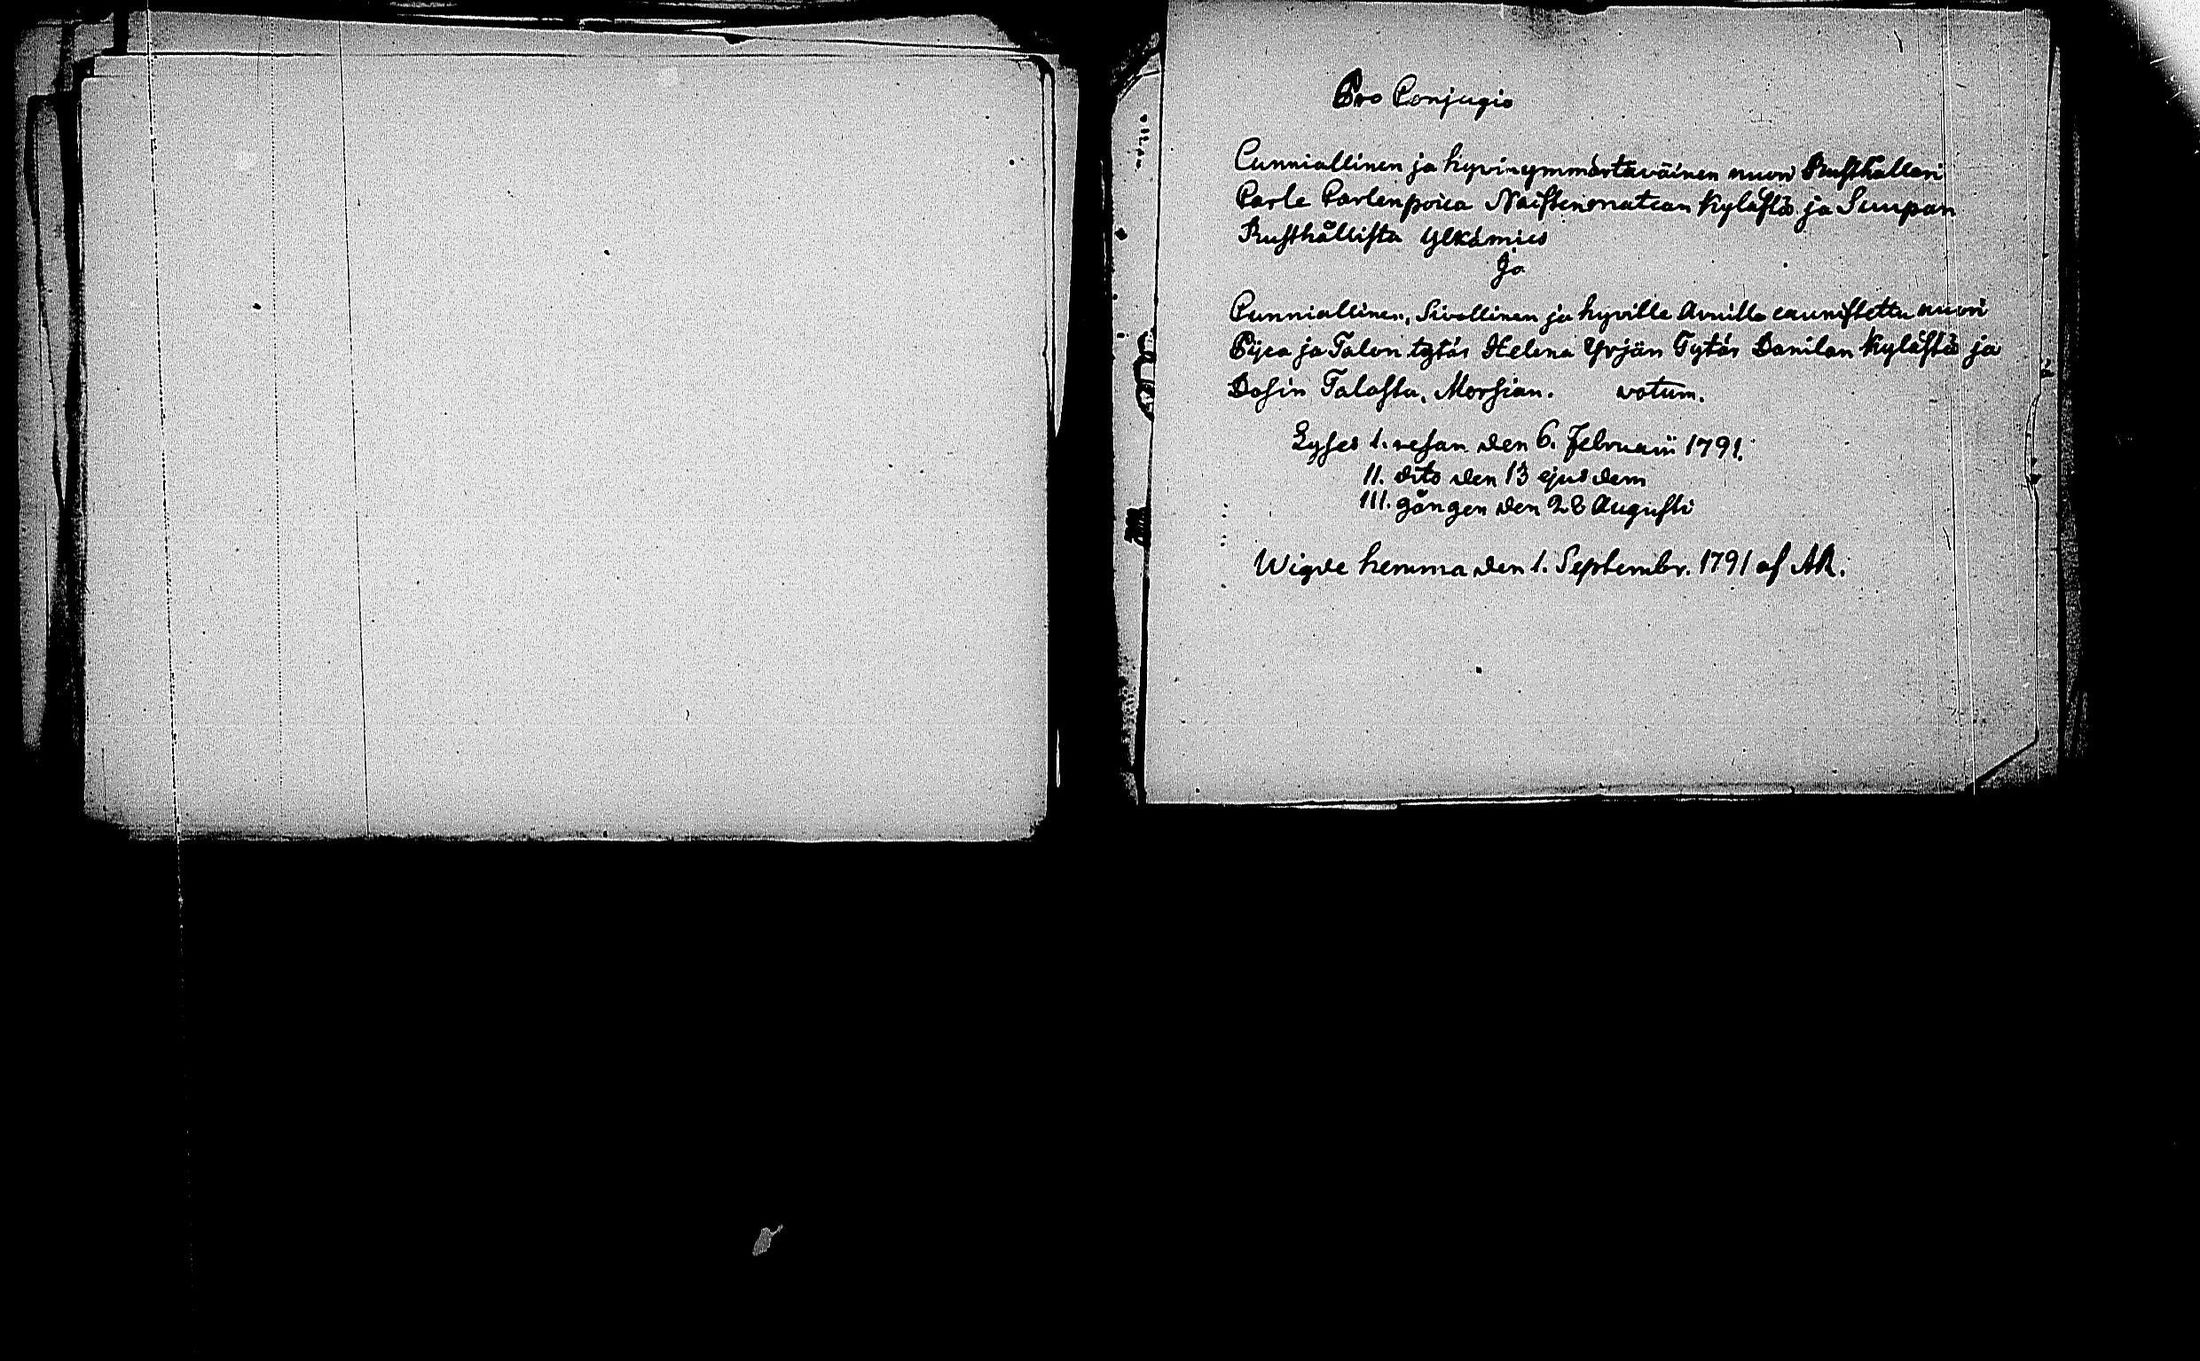 Pro Conjugio
Cunniallinen ja hyvinymmärtäväinen nuori Rusthållari
Carle Carlenpoica Naistenmatcan kylästä ja Suupan
Rusthållista Ylkämies
Ja
Cunniallinen, Sivollinen ja hyville Avuilla caunistettu nuori
Pijca ja Talon tytär Helena Yrjän Tytär Danilan kylästä ja
Dosin Talosta, Morsian. votum.
Lyses 1. resan den 6. Februarii 1791.
II. dito den 13 ejusdem
III. gången den 28 Augusti
Wigde hemma den 1. Septembr. 1791 af AR.